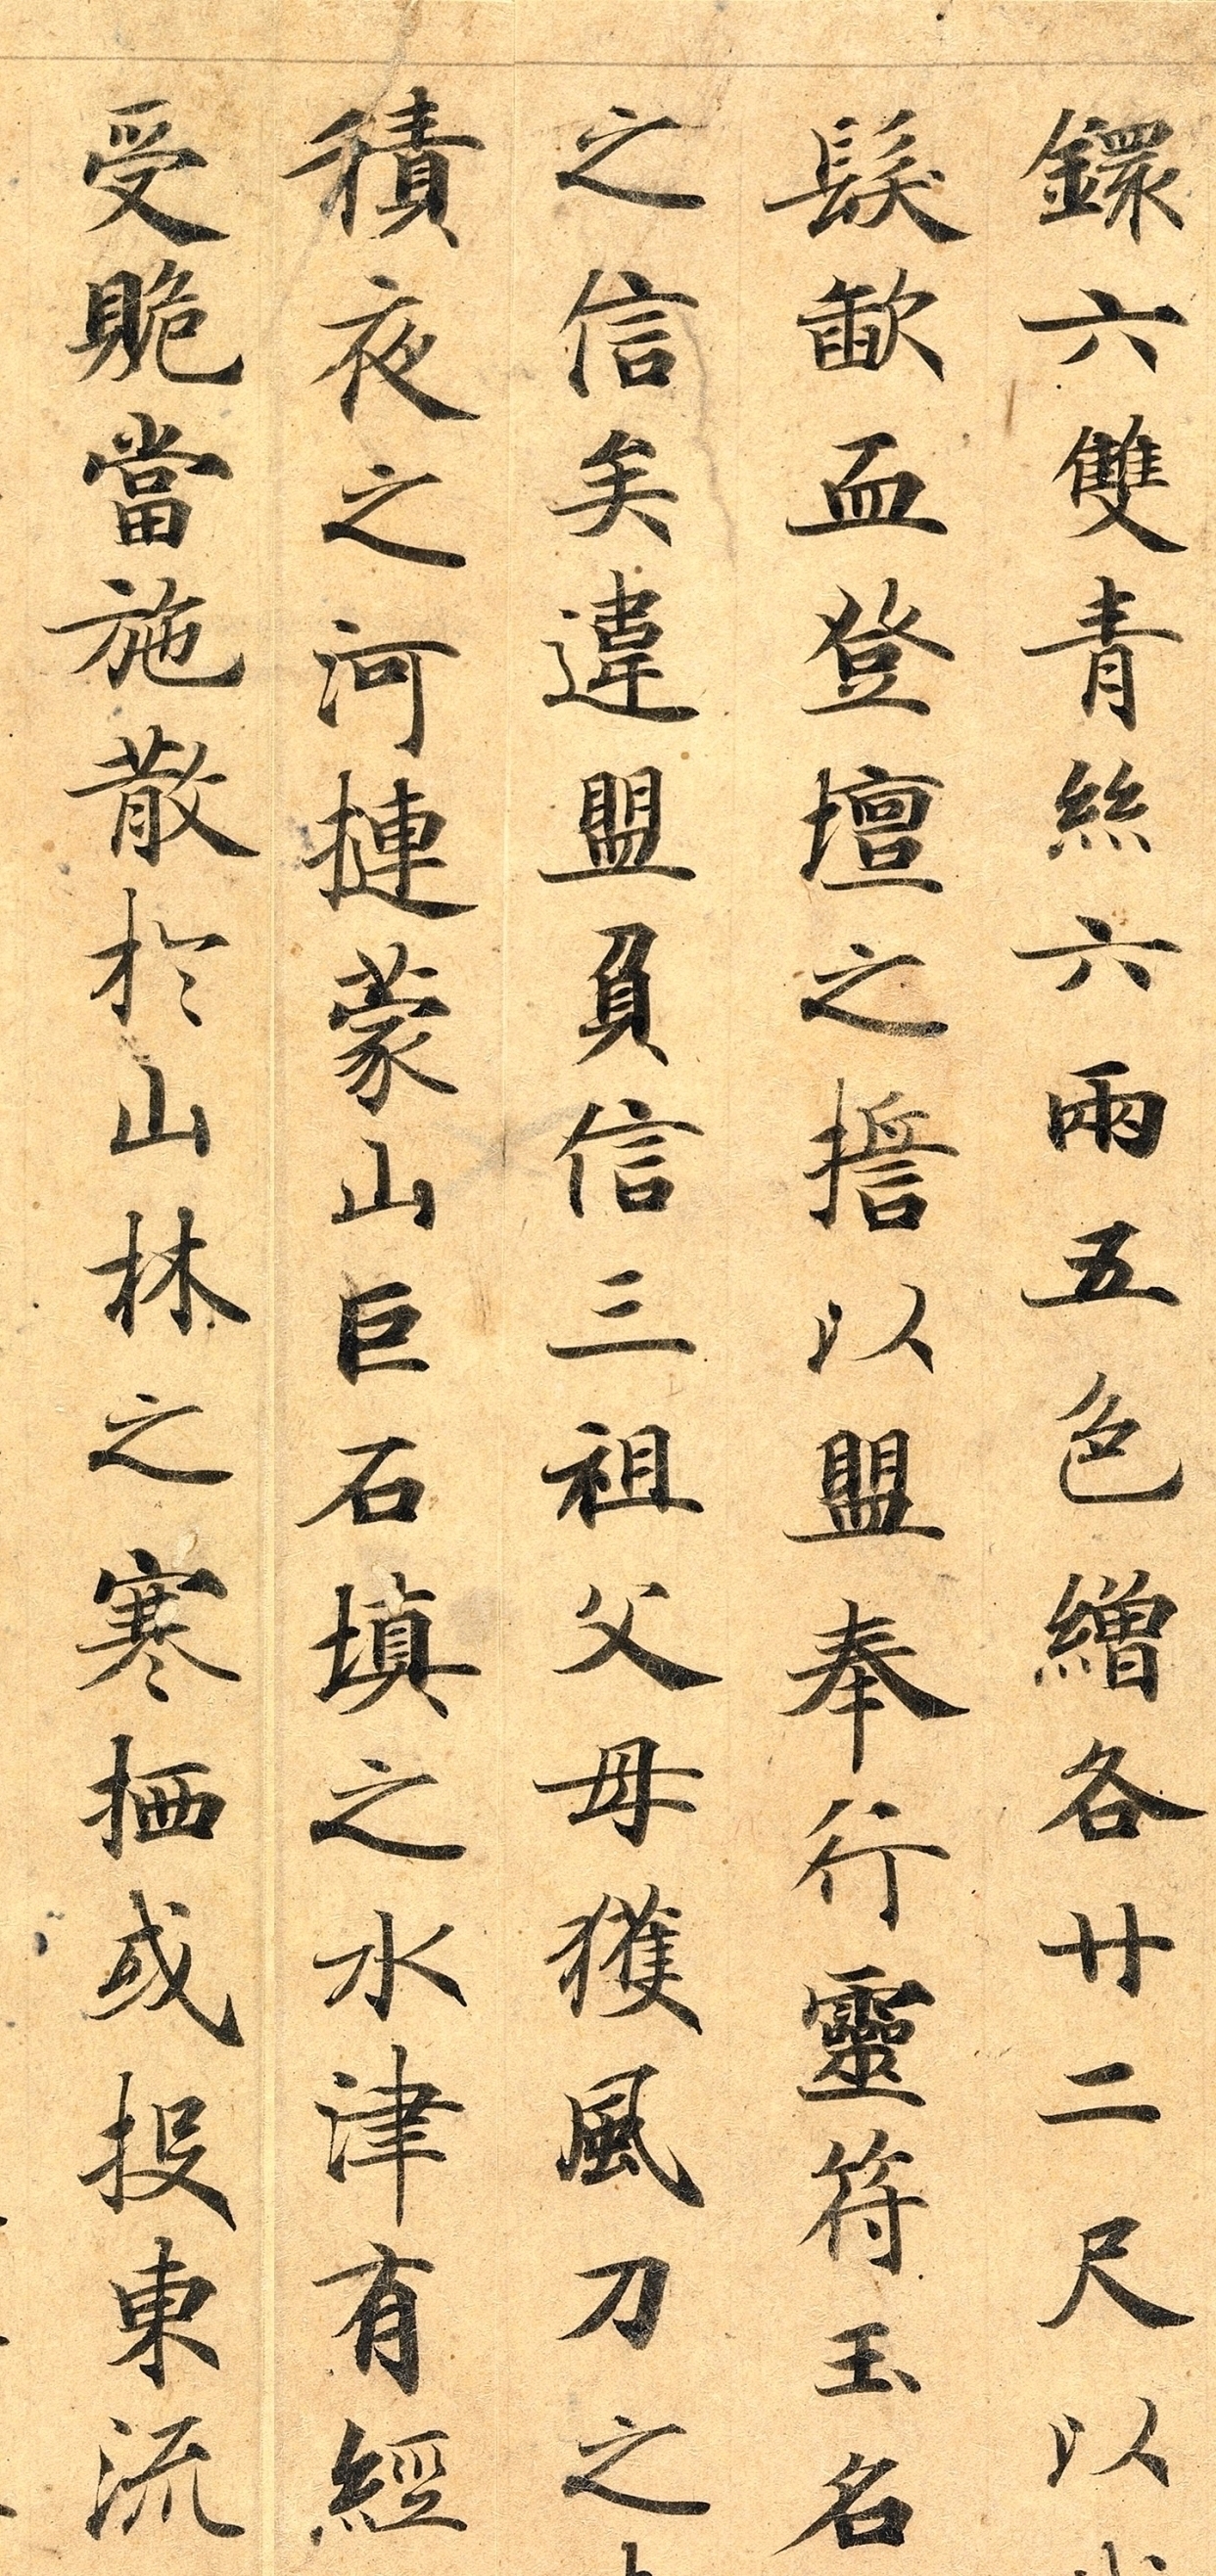 鐶六雙青絲六兩五色繒各廿二尺以
髮歃血登壇之誓以盟奉行靈符玉名
之信矣違盟負信三祖父母獲風刀之
積夜之河摙蒙山巨石填之水津有經
受貤當施散於山林之寒栖或投東流